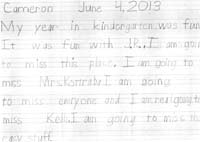 Cameron June 4, 2013
My year in kindergarten was fun
It was fun with J.R., I am goin
to miss this place. I am going to
miss Mrs. I am going
to miss enryone and I am going to
miss Kell. I am going to miss the
easy stuff